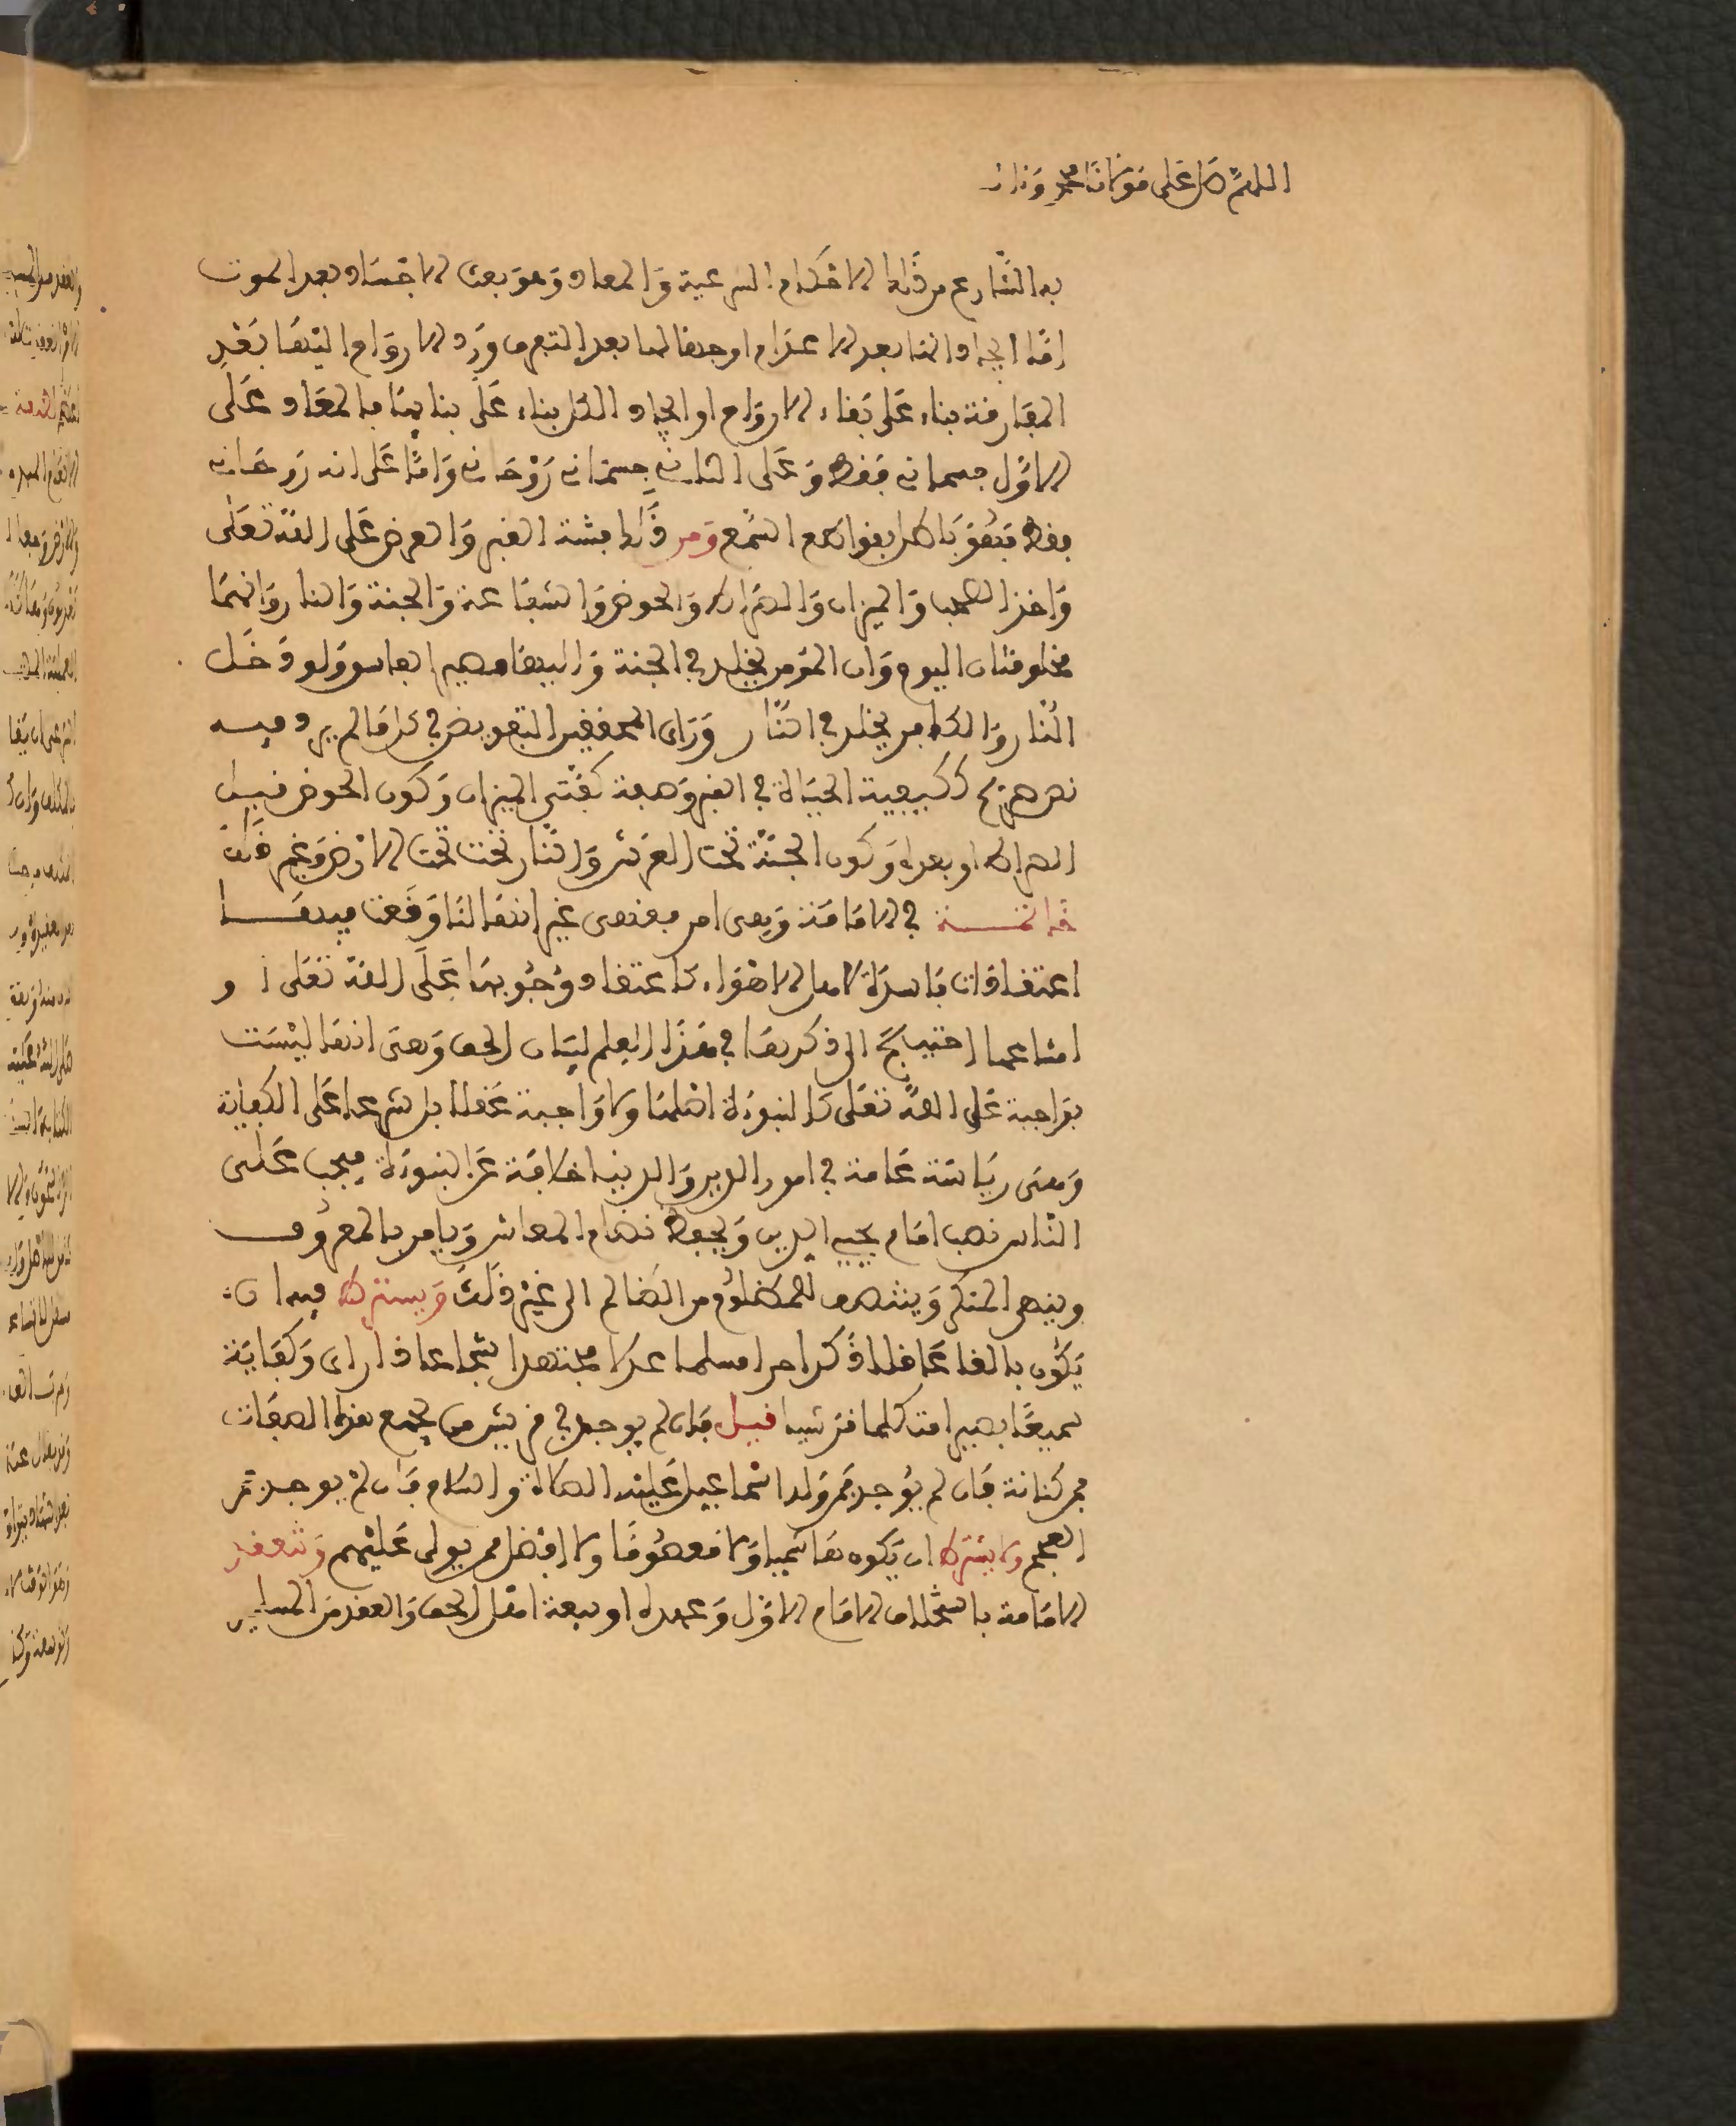 اللهم صل على مولانا محمد وءاله
به الشارع من ذلك الاحكام الشرعية والمعاد وهو بعث الاجساد بعد الموت
اما ايجادا لها بعد الاعدام او جمعا لها بعد التفرق ورد الارواح اليها بعد
المفارقة بناء على بقاء الارواح او ايجاد الكل بناء على فنائها فالمعاد على
الاول جسماني فقط وعلى الثاني جسماني روحاني واما على انه روحاني
فقط فهو باطل بقواطع السمع ومن ذلك فتنة القبر والعرض على الله تعلى
واخذ الصحف والميزان والصراط والحوض والشفاعة والجنة والنار وانهما
مخلوقتان اليوم وان المومن يخلد في الجنة واليها مصير الفاسق ولو دخل
النار والكافر يخلد في النار وراى المحققين التفويض في كل ما لم يرد فيه
نص صريح ككيفية الحياة في القبر وصفة كفتي الميزان وكون الحوض قبل
الصراط او بعده وكون الجنة تحت العرش والنار تحت تحت الارض وغير ذلك
خاتمة في الامامة وهى امر فقهى غير انها لما وقعت فيها
اعتقادات فاسدة لاهل الاهواء كاعتقاد وجوبها على الله تعلى او
امتناعها احتيج الى ذكرها في هذا العلم لبيان الحق وهى انها ليست
بواجبة على الله تعلى كالنبوة اصلها ولا واجبة عقلا بل شرعا على الكفاية
وهى رياسة عامة في امور الدين والدنيا خلافة عن النبوة فيجب على
الناس نصب امام يحيى الدين ويحفظ نظام المعاش ويامر بالمعروف
وينهى المنكر وينتصف للمظلوم من الظالم الى غير ذلك ويشترط فيه ان
يكون بالغا عاقلا ذكرا حرا مسلما عدلا مجتهدا شجاعا ذا راى وكفاية
سميعا بصيرا متكلما قرشيا قيل فان لم يوجد في قريش من يجمع هذه الصفات
فمن كنانة فان لم يوجد فمن ولد اسماعيل عليه الصلاة والسلام فان لم يوجد فمن
العجم ولا يشترط ان يكون هاشميا ولا معصوما ولا افضل ممن يولى عليهم وتنعقد
الامامة باستخلاف الامام الاول وعهده او بيعة اهل الحق والعقد من المسلمين